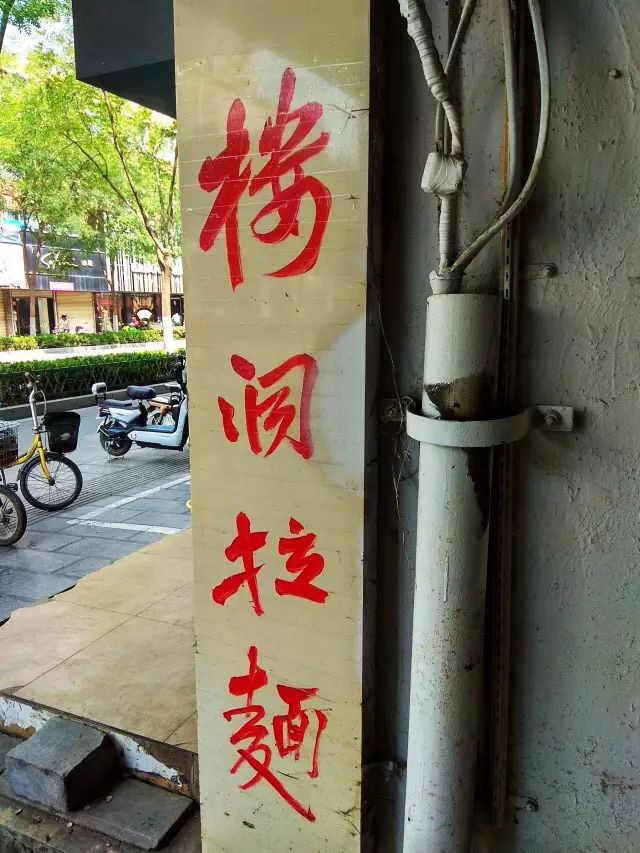 楼洞拉麵